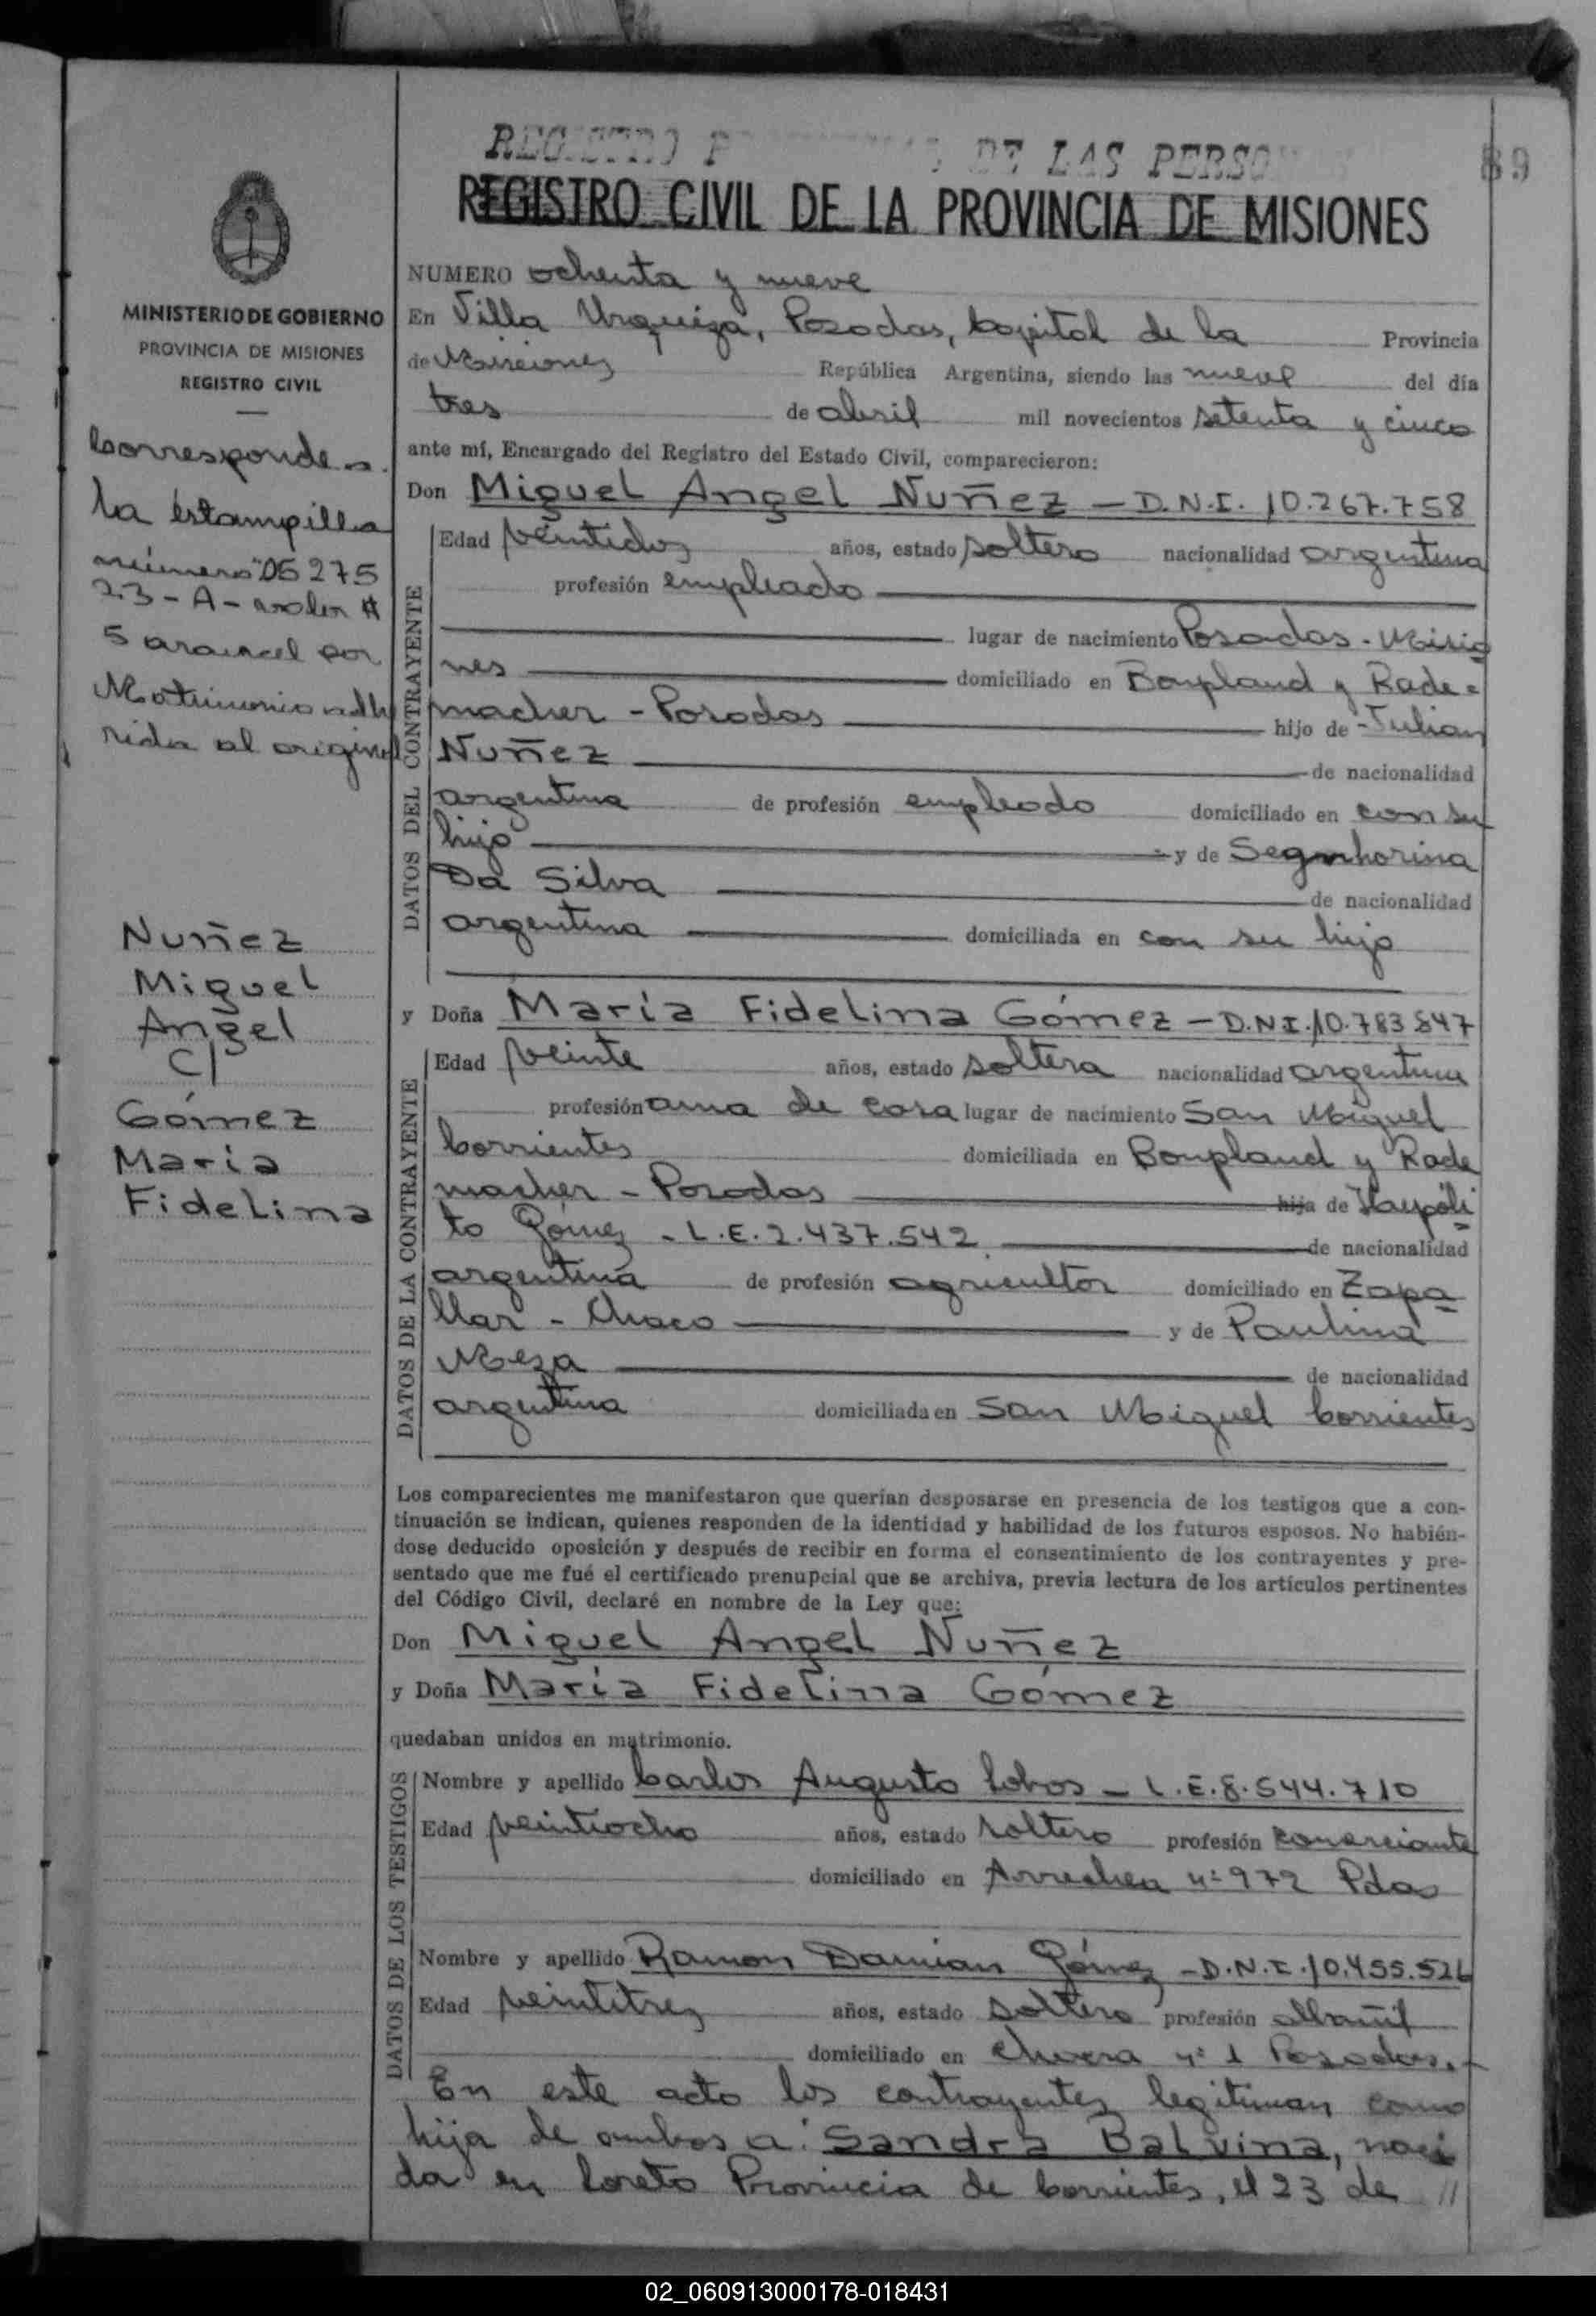 REGISTRO P DE LAS PERSON
89
REGISTRO CIVIL DE LA PROVINCIA DE MISIONES
MINISTERIO DE GOBIERNO
PROVINCIA DE MISIONES
REGISTRO CIVIL
Corresponde a
la estampilla
número 05275
23-A- valor $
5 arancel por
Matrimonio adhe
rida al original
Nuñez
Miguel
Angel
C/
Gómez
María
Fidelina
NUMERO ochenta y nueve
En Villa Urquiza, Posadas, Capital de la Provincia
de Misiones República Argentina, siendo las nueve del día
tres de abril mil novecientos setenta y cinco
ante mí, Encargado del Registro del Estado Civil, comparecieron:
Don Miguel Angel Nuñez - D.N.I. 10.267.758
DATOS DEL CONTRAYENTE
Edad veintidos años, estado soltero nacionalidad argentina
profesión empleado
lugar de nacimiento Posadas - Misio
nes domiciliado en Bonpland y Rade=
macher - Posadas hijo de Julian
Nuñez de nacionalidad
argentina de profesión empleado domiciliado en con su
hijo y de Segnhorina
Da Silva de nacionalidad
argentina domiciliada en con su hijo
y Doña María Fidelina Gómez - D.N.I. 10.783.847
DATOS DE LA CONTRAYENTE
Edad veinte años, estado soltera nacionalidad argentina
profesión ama de casa lugar de nacimiento San Miguel
Corrientes domiciliada en Bonpland y Rade
macher - Posadas hija de Haypóli
to Gómez - L.E. 2.437.542 de nacionalidad
argentina de profesión agricultor domiciliado en Zapa
llar - Chaco y de Paulina
Meza de nacionalidad
argentina domiciliada en San Miguel Corrientes
Los comparecientes me manifestaron que querían desposarse en presencia de los testigos que a con-
tinuación se indican, quienes responden de la identidad y habilidad de los futuros esposos. No habién-
dose deducido oposición y después de recibir en forma el consentimiento de los contrayentes y pre-
sentado que me fué el certificado prenupcial que se archiva, previa lectura de los artículos pertinentes
del Código Civil, declaré en nombre de la Ley que:
Don Miguel Angel Nuñez
y Doña María Fidelina Gómez
quedaban unidos en matrimonio.
DATOS DE LOS TESTIGOS
Nombre y apellido Carlos Augusto Lobos - L.E. 8.544.710
Edad veintiocho años, estado soltero profesión comerciante
domiciliado en Arrechea nº 972 Pdas
Nombre y apellido Ramon Damian Gómez - D.N.I. 10.455.526
Edad veintitres años, estado soltero profesión albañil
domiciliado en Chacra nº 1 Posadas.-
En este acto los contrayentes legitiman como
hija de ambos a: Sandra Balvina, naci
da en Loreto Provincia de Corrientes, el 23 de //
02_060913000178-018431